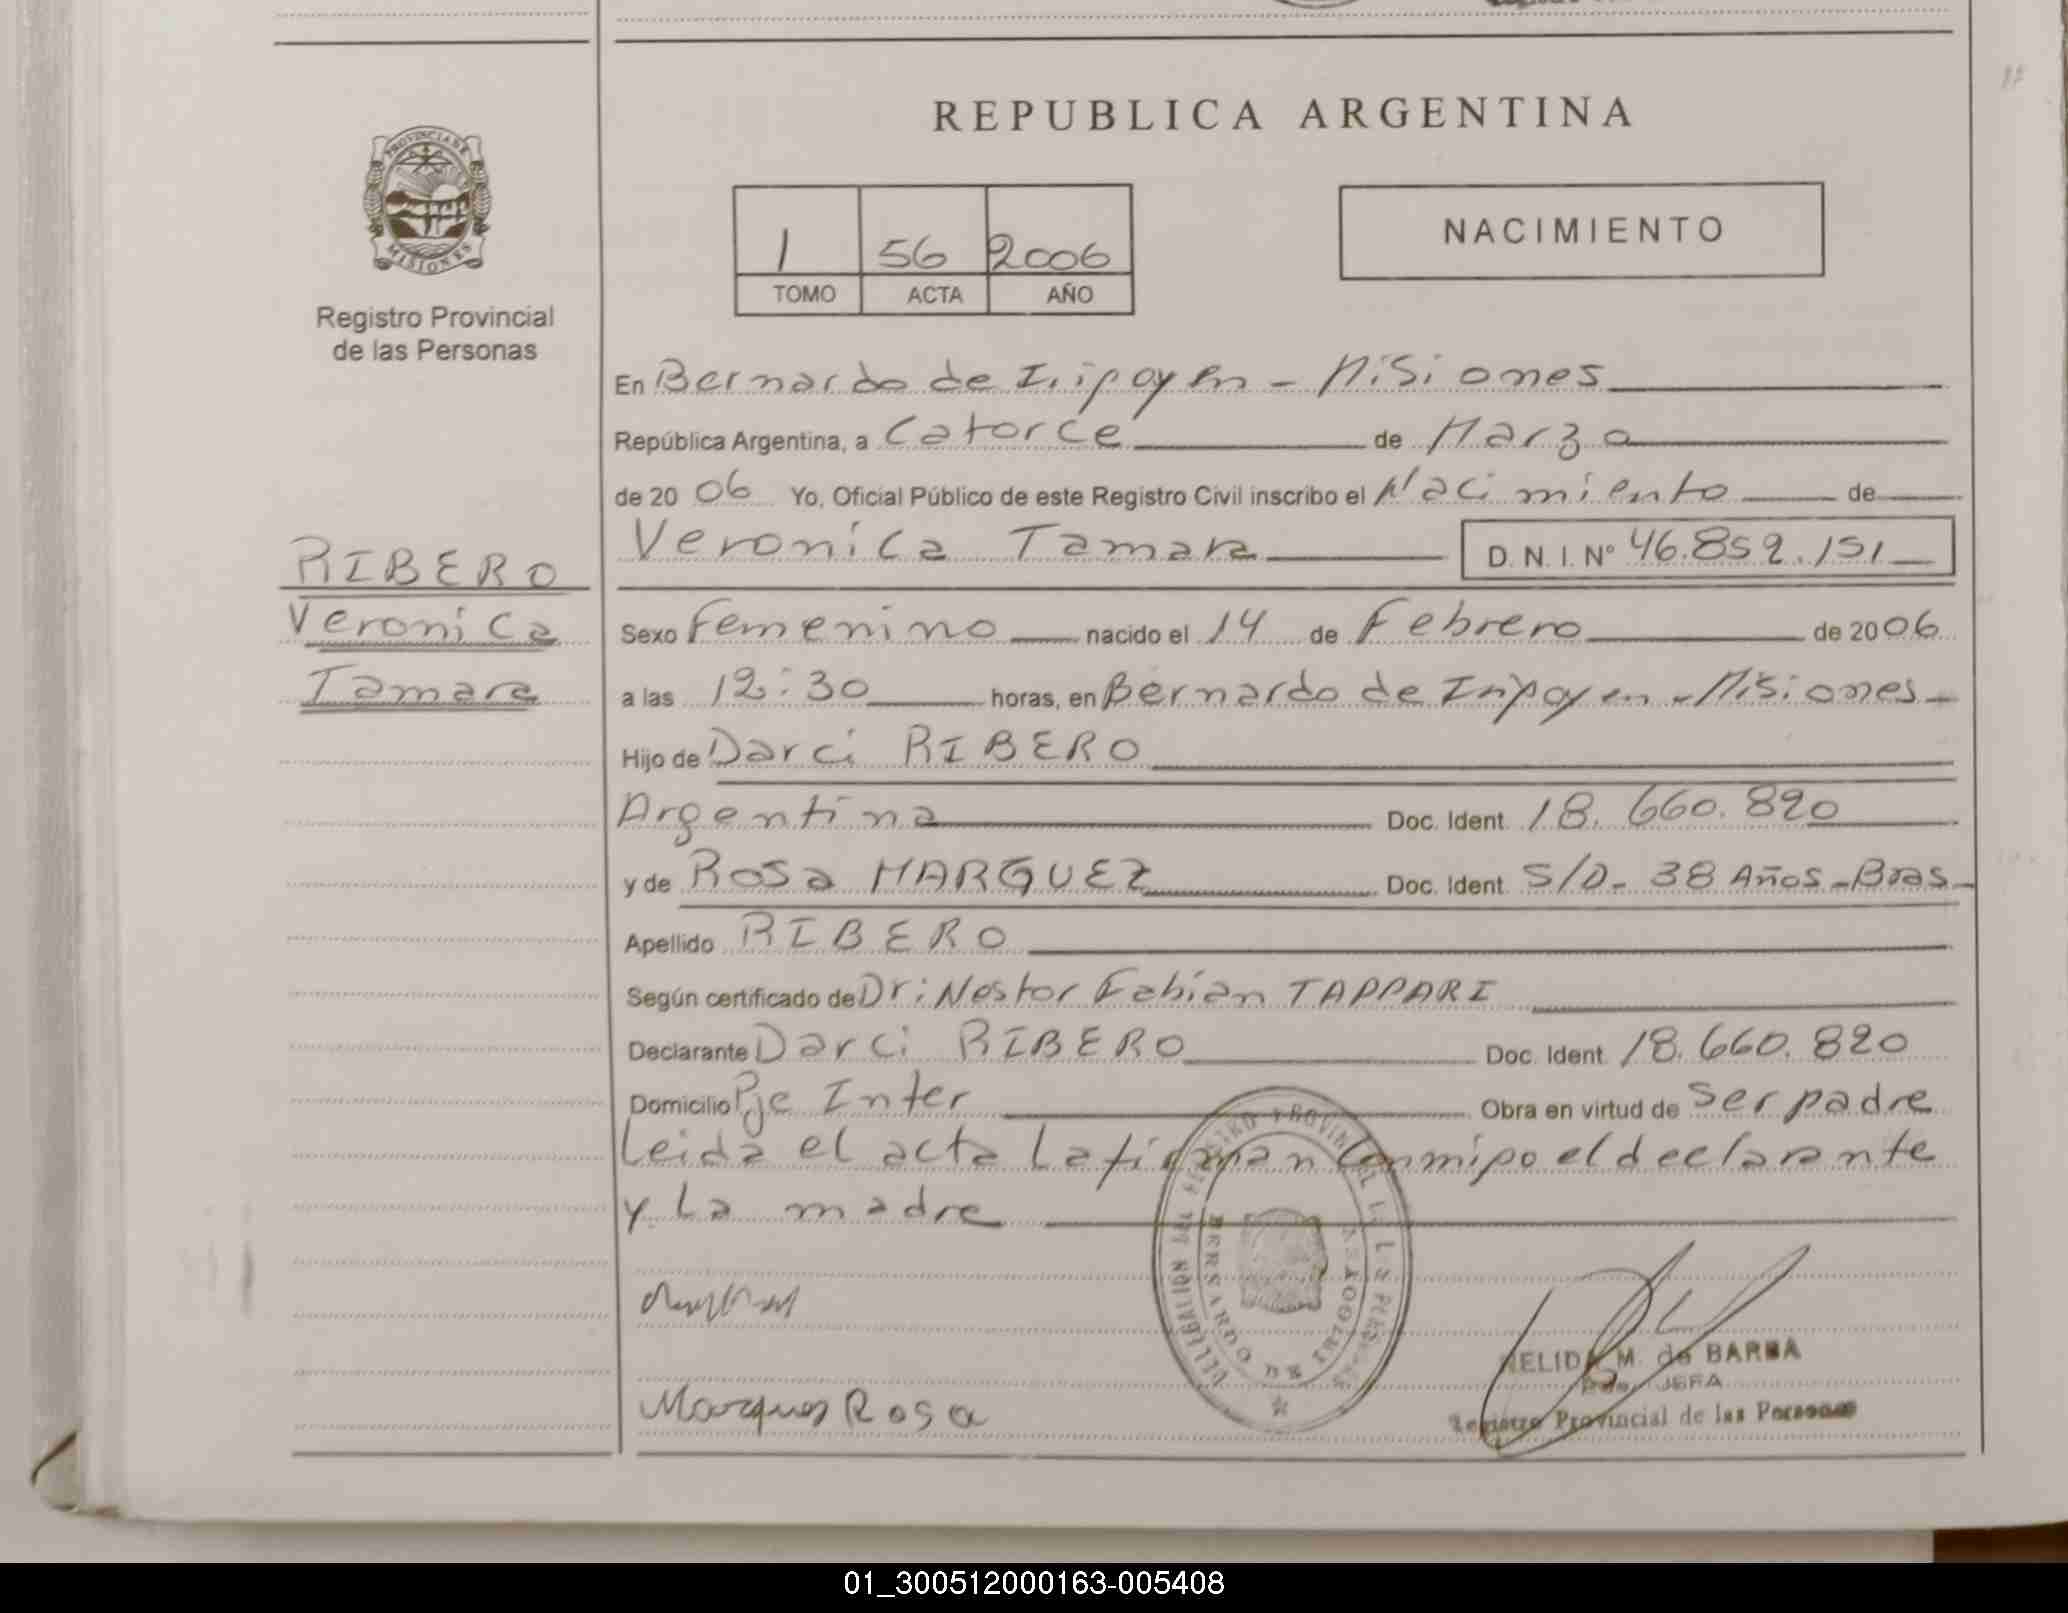 REPUBLICA ARGENTINA
PROVINCIA DE
MISIONES
Registro Provincial
de las Personas
1 56 2006
TOMO ACTA AÑO
NACIMIENTO
En Bernardo de Irigoyen - Misiones
República Argentina, a Catorce de Marzo
de 20 06 Yo, Oficial Público de este Registro Civil inscribo el Nacimiento de
Veronica Tamara D.N.I. Nº 46.852.151
RIBERO
Veronica
Tamara
Sexo Femenino nacido el 14 de Febrero de 2006
a las 12:30 horas, en Bernardo de Irigoyen - Misiones
Hijo de Darci RIBERO
Argentina Doc. Ident. 18.660.820
y de Rosa MARQUEZ Doc. Ident. S/D - 38 Años - Bras
Apellido RIBERO
Según certificado de Dr: Nestor Fabian TAPPARI
Declarante Darci RIBERO Doc. Ident. 18.660.820
Domicilio Pje Inter Obra en virtud de Ser padre
Leida el acta La firman Conmigo el declarante
y La madre
Marques Rosa
NELIDA M. de BARBA
JEFA
Registro Provincial de las Personas
BERNARDO DE IRIGOYEN
01_300512000163-005408